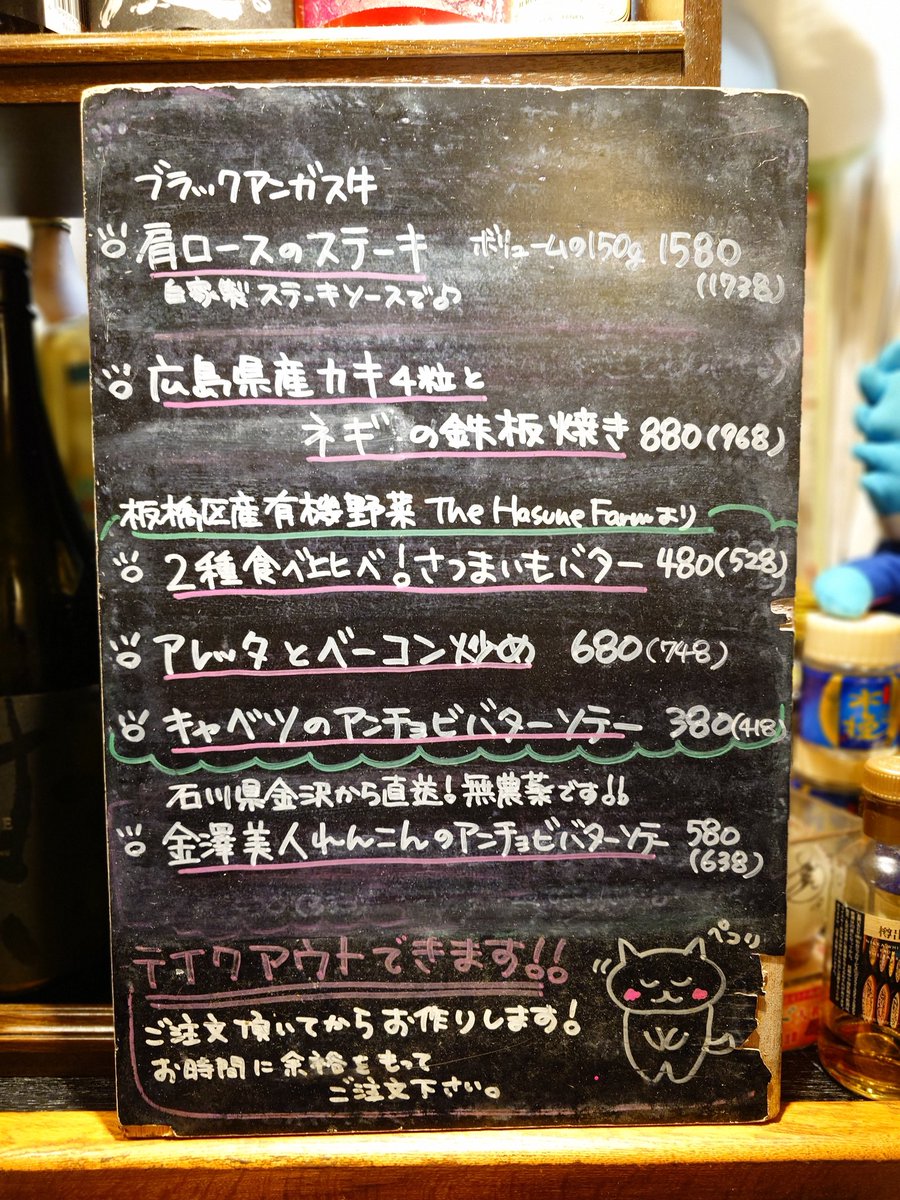 ブラックアンガス牛
肩ロースのステーキ ボリュームの150g 1580
(1738)
自家製ステーキソースで♪
広島県産カキ4粒と
ネギの鉄板焼き 880(968)
板橋区産有機野菜 The Hasune Farmより
2種食べ比べ!さつまいもバター 480(528)
アレッタとベーコン炒め 680(748)
キャベツのアンチョビバターソテー 380(418)
石川県金沢から直送!無農薬です!!
金澤美人れんこんのアンチョビバターソテー 580
(638)
テイクアウトできます!!
ペコリ
ご注文頂いてからお作りします!
お時間に余裕をもって
ご注文下さい。